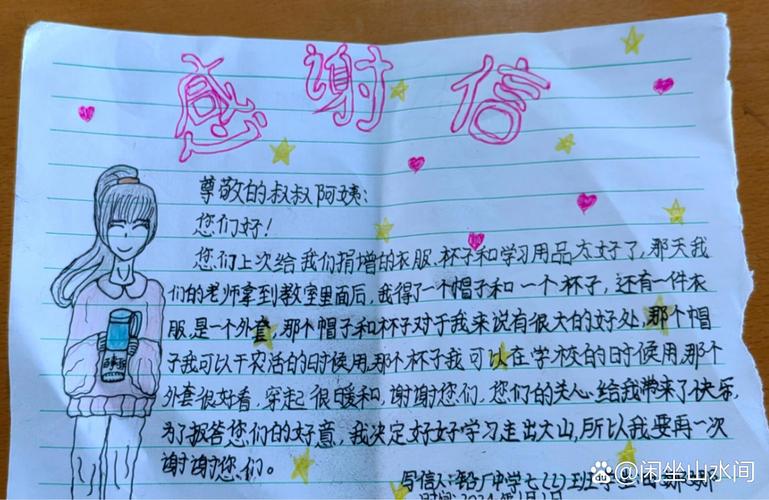 感谢信
尊敬的叔叔阿姨:
您们好!
您们上次给我们捐增的衣服、杯子和学习用品太好了,那天我
们的老师拿到教室里面后,我得了一个帽子和一个杯子,还有一件衣
服,是一个外套,那个帽子和杯子对于我来说有很大的好处,那个帽
子我可以干农活的时候用,那个杯子我可以在学校的时候用,那个
外套很好看,穿起很暖和,谢谢您们,您们的关心给我带来了快乐,
为了报答您们的好意,我决定好好学习走出大山,所以我要再一次
谢谢您们。
写信人: 中学七(2)班
时间:2024年
Baidu 闲坐山水间